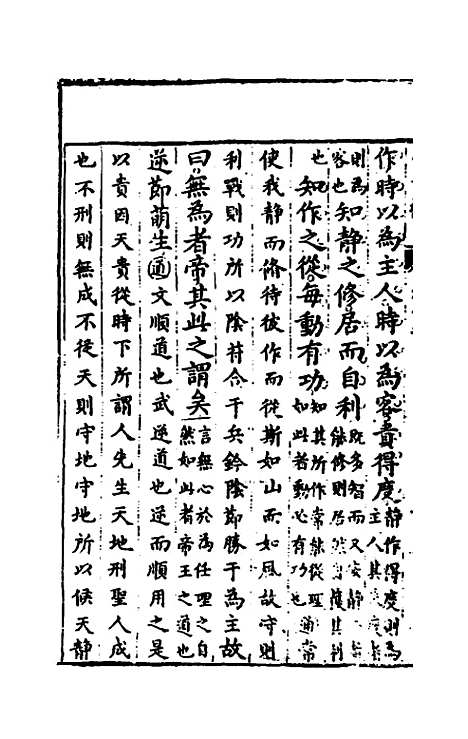 作時以為主人時以為客貴得度靜作得度則為主人其
則為客也知靜之修居而自利既多智而又安靜能修則居然獲其利
也知作之從每動有功知其所作常能從理如此者動必有功也通常
使我靜而脩待彼作而從斯如山而如風故守則
利戰則功所以陰符合于兵鈐陰節勝于為主故
曰無為者帝其此之謂矣言無心於為任理之自然如此者帝王之道也
逆節萌生通文順道也武逆道也逆而順用之是
以貴因天貴從時下所謂人先生天地刑聖人成
也不刑則無成不從天則守地守地所以候天靜